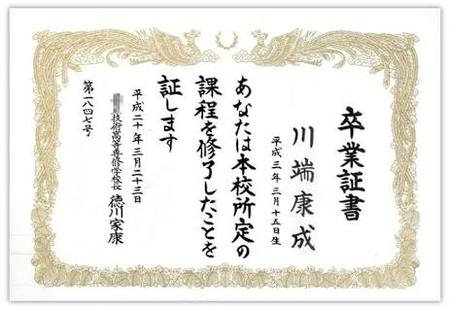 卒業証書
川端康成
平成三年三月十五日生
あなたは本校所定の
課程を修了したことを
証します
平成二十年三月二十三日
技術高等専修学校長 徳川家康
第一八四七号